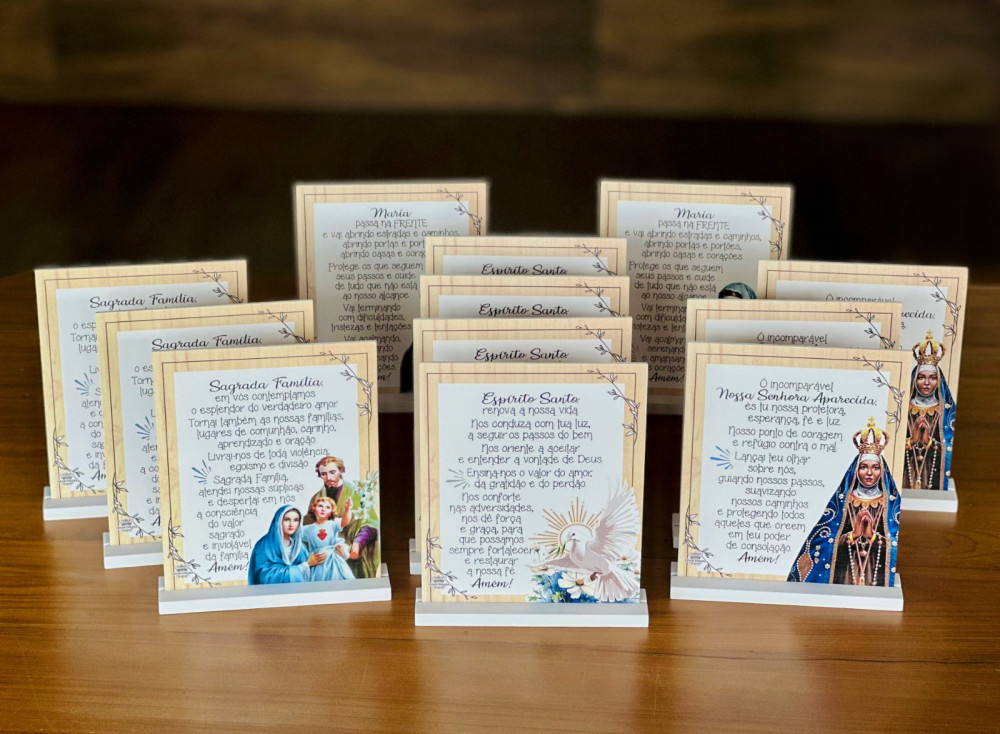 Maria
passa na FRENTE
e vai abrindo estradas e caminhos,
abrindo portas e port
abrindo casas e coraçõ
Protege os que seguem
seus passos e cuide
de tudo que não está
ao nosso alcance
Vai terminando
com dificuldades,
tristezas e tentações
Maria
passa na FRENTE
e vai abrindo estradas e caminhos,
abrindo portas e portões,
abrindo casas e corações
Protege os que seguem
seus passos e cuide
de tudo que não está
ao nosso alcance
Vai terminando
com dificuldades,
tristezas e tentações
Vai
acalmando,
serenando
Amém!
Espírito Santo
Espírito Santo
Espírito Santo
Sagrada Família,
o es
Tornai
luga
Sagrada Família,
o es
Tornai
lugar
Ó incomparável
Aparecida,
Ó incomparável
Sagrada Família,
em vós contemplamos
o esplendor do verdadeiro amor
Tornai também as nossas famílias,
lugares de comunhão, carinho,
aprendizado e oração
Livrai-nos de toda violência
egoísmo e divisão
Sagrada Família,
atendei nossas súplicas
e despertai em nós
a consciência
do valor
sagrado
e inviolável
da família
Amém!
Espírito Santo
renova a nossa vida
Nos conduza com tua luz,
a seguir os passos do bem
Nos oriente a aceitar
e entender a vontade de Deus
Ensina-nos o valor do amor,
da gratidão e do perdão
Nos conforte
nas adversidades,
nos dê força
e graça, para
que possamos
sempre fortalecer
e restaurar
a nossa fé
Amém!
Ó incomparável
Nossa Senhora Aparecida,
és tu nossa protetora,
esperança, fé e luz
Nosso ponto de coragem
e refúgio contra o mal
Lançai teu olhar
sobre nós,
guiando nossos passos,
suavizando
nossos caminhos
e protegendo todos
aqueles que creem
em teu poder
de consolação
Amém!